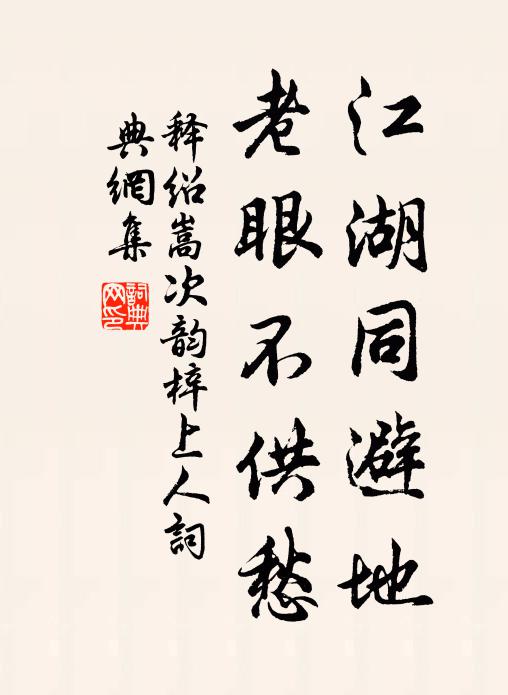 江湖同避地
老眼不供愁
释绍嵩次韵梓上人詞
典網集
詞典网印